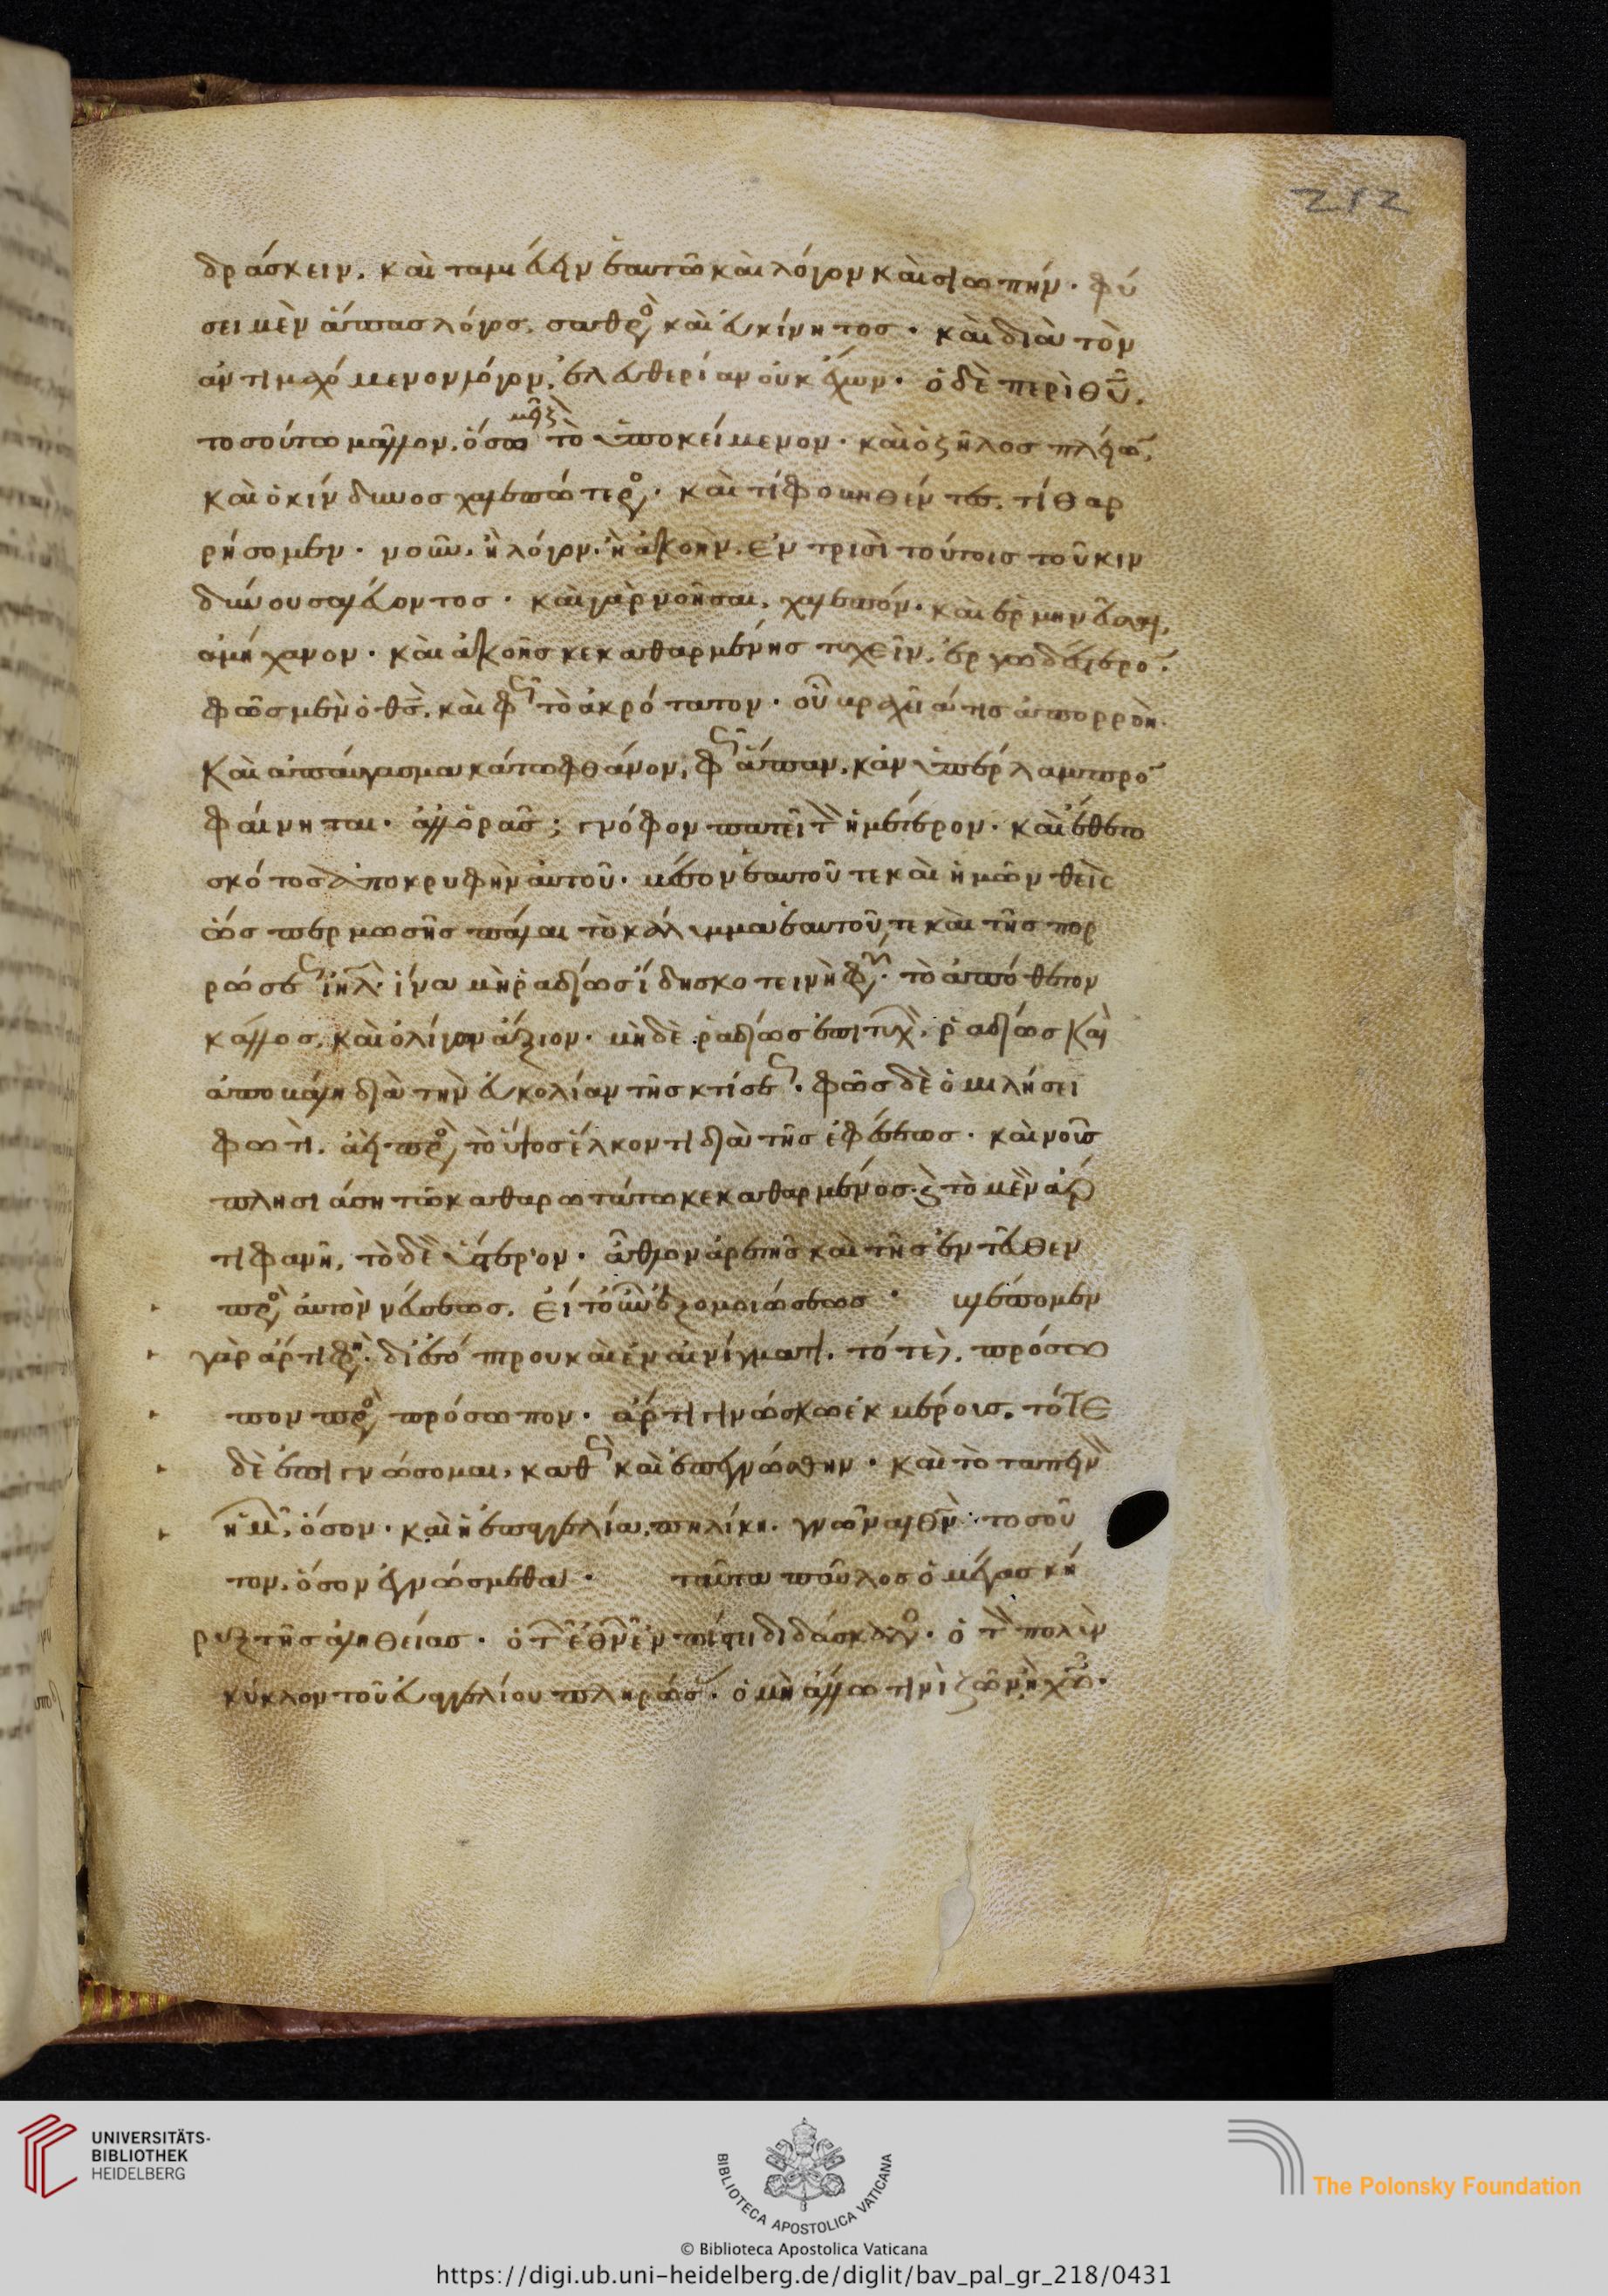 δράσκειν, καὶ ταμιεύειν ἑαυτῶ καὶ λόγον καὶ σιωπήν· φύ
σει μὲν ἅπας λόγος, σαθρὸς καὶ εὐκίνητος· καὶ διὰ τὸν
ἀντιμαχόμενον λόγον, ἐλευθερίαν οὐκ ἔχων· ὁ δὲ περὶ θῦ,
τοσούτω μᾶλλον, ὅσω μεῖζον τὸ ὑποκείμενον· καὶ ὁ ζῆλος πλείων,
καὶ ὁ κίνδυνος χαλεπώτερος· καὶ τί φοβηθέντες, τί θαρ
ρήσομεν· νοῦν, ἢ λόγον, ἢ ἀκοὴν, ἐν τρισὶ τούτοις τοῦ κιν
δύνου σαλεύοντος· καὶ γὰρ νοῆσαι, χαλεπόν· καὶ ἑρμηνεῦσαι,
ἀμήχανον· καὶ ἀκοῆς κεκαθαρμένης τυχεῖν, ἐργωδέστερον·
φῶς μὲν ὁ θς, καὶ φῶς τὸ ἀκρότατον· οὗ βραχεῖά τις ἀπορροὴ
καὶ ἀπαύγασμα κάτω φθάνον, φῶς ἅπαν, κἂν ὑπέρλαμπρον
φαίνηται· ἀλλ' ὁρᾶς; γνόφον πατεῖ τὸν ἡμέτερον· καὶ ἔθετο
σκότος ἀποκρυφὴν αὐτοῦ· μέσον ἑαυτοῦ τε καὶ ἡμῶν θεὶς
ὥσπερ μωσῆς πάλαι τὸ κάλυμμα ἑαυτοῦ τε καὶ τῆς πω
ρώσεως ἰηλ· ἵνα μὴ ῥαδίως ἴδη σκοτεινὴ φύσις τὸ ἀπόθετον
κάλλος, καὶ ὀλίγων ἄξιον· μηδὲ ῥαδίως ἐπιτυχὸν, ῥαδίως καὶ
ἀποβάλη διὰ τὴν εὐκολίαν τῆς κτήσεως· φῶς δὲ ὁμιλήσει
φωτὶ, ἀεὶ πρὸς τὸ ὕψος ἕλκοντι διὰ τῆς ἐφέσεως· καὶ νοῦς
πλησιάση τῶ καθαρωτάτω κεκαθαρμένος· καὶ τὸ μὲν ἄρ
τι φανῆ, τὸ δὲ ὕστερον· ἆθλον ἀρετῆς καὶ τῆς ἐντεῦθεν
πρὸς αὐτὸν νεύσεως, εἴτουν ἐξομοιώσεως· βλέπομεν
γὰρ ἄρτι φησὶ, δι' ἐσόπτρου καὶ ἐν αἰνίγματι, τότε δὲ, πρόσω
πον πρὸς πρόσωπον· ἄρτι γινώσκω ἐκ μέρους, τότε
δὲ ἐπιγνώσομαι, καθὼς καὶ ἐπεγνώσθην· καὶ τὸ ταπεινὸν
ἡμῶν, ὅσον· καὶ ἡ ἐπαγγελία, πηλίκη· γνῶναι θν τοσοῦ
τον, ὅσον ἐγνώσμεθα· ταῦτα παῦλος ὁ μέγας κή
ρυξ τῆς ἀληθείας· ὁ τῶν ἐθνῶν ἐν πίστει διδάσκαλος· ὁ τὸν πολὺν
κύκλον τοῦ εὐαγγελίου πληρώσας· ὁ μὴ ἄλλω τινὶ ζῶν ἢ χω·
212
UNIVERSITÄTS-
BIBLIOTHEK
HEIDELBERG
BIBLIOTECA APOSTOLICA VATICANA
The Polonsky Foundation
© Biblioteca Apostolica Vaticana
https://digi.ub.uni-heidelberg.de/diglit/bav_pal_gr_218/0431